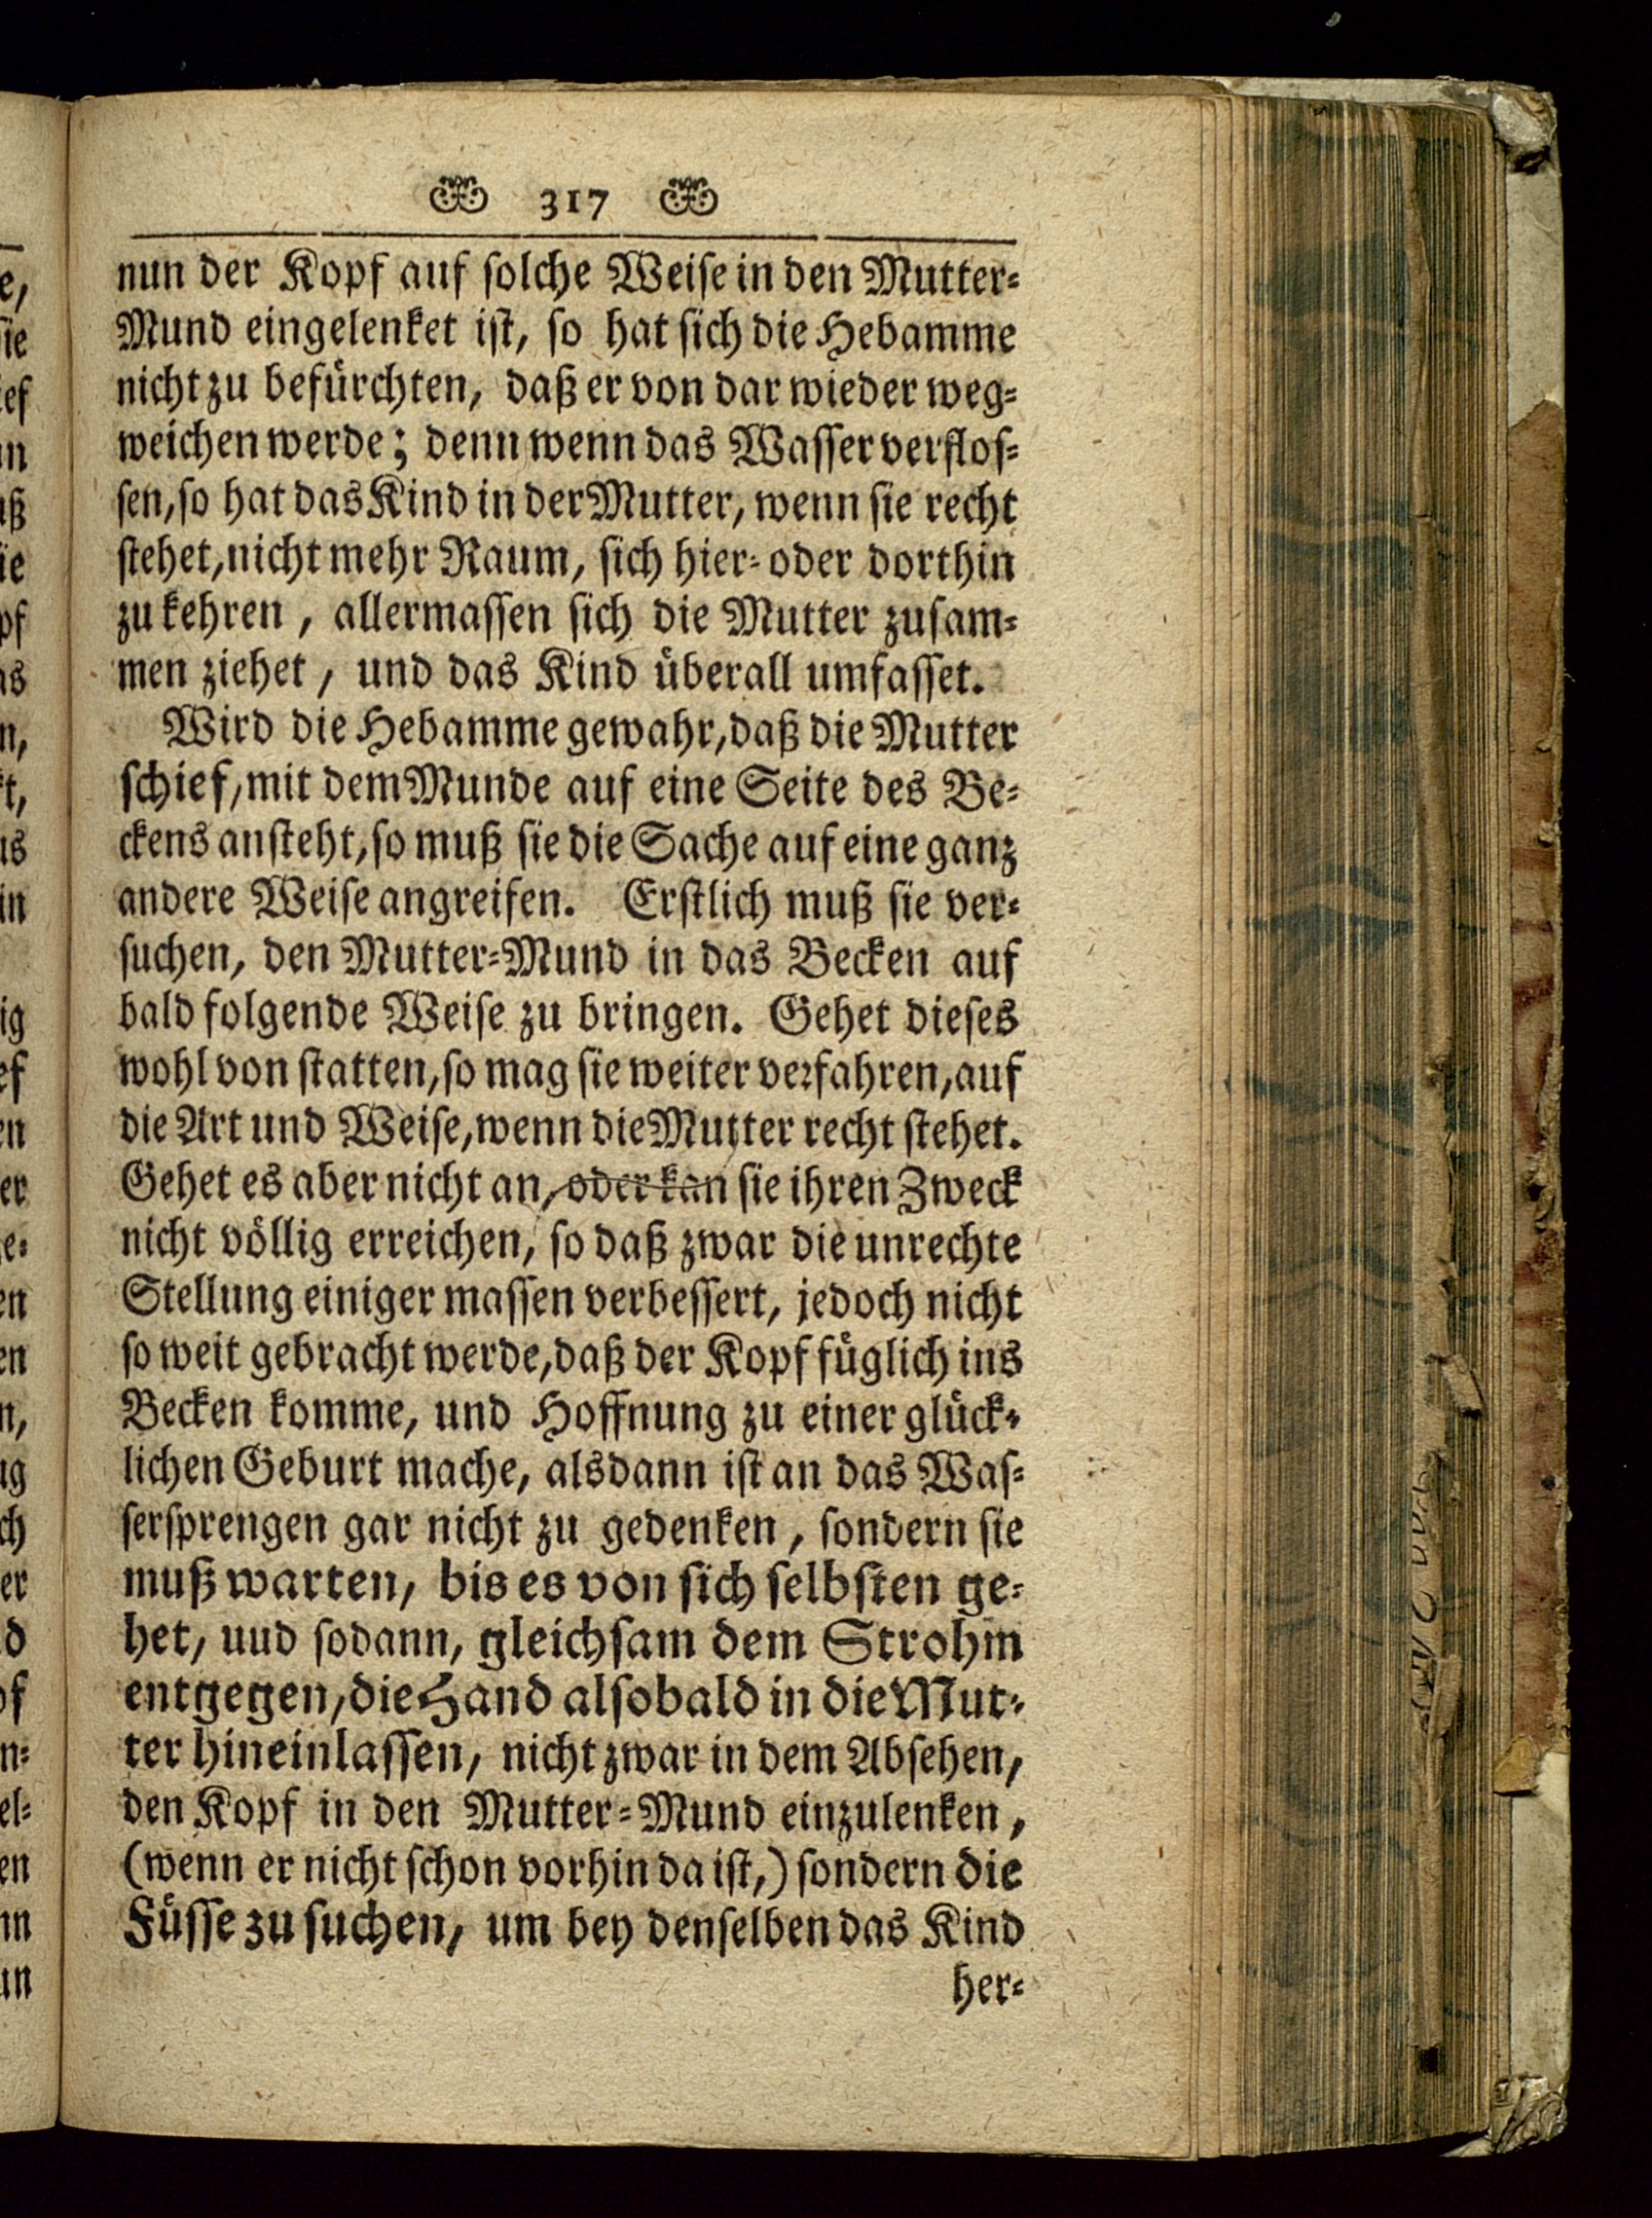 317
nun der Kopf auf solche Weise in den Mutter-
Mund eingelenket ist, so hat sich die Hebamme
nicht zu befürchten, daß er von dar wieder weg-
weichen werde; denn wenn das Wasser verflos-
sen, so hat das Kind in der Mutter, wenn sie recht
stehet, nicht mehr Raum, sich hier- oder dorthin
zu kehren, allermassen sich die Mutter zusam-
men ziehet, und das Kind überall umfasset.
Wird die Hebamme gewahr, daß die Mutter
schief, mit dem Munde auf eine Seite des Be-
ckens ansteht, so muß sie die Sache auf eine ganz
andere Weise angreifen. Erstlich muß sie ver-
suchen, den Mutter-Mund in das Becken auf
bald folgende Weise zu bringen. Gehet dieses
wohl von statten, so mag sie weiter verfahren, auf
die Art und Weise, wenn die Mutter recht stehet.
Gehet es aber nicht an, oder kan sie ihren Zweck
nicht völlig erreichen, so daß zwar die unrechte
Stellung einiger massen verbessert, jedoch nicht
so weit gebracht werde, daß der Kopf füglich ins
Becken komme, und Hoffnung zu einer glück-
lichen Geburt mache, alsdann ist an das Was-
sersprengen gar nicht zu gedenken, sondern sie
muß warten, bis es von sich selbsten ge-
het, uud sodann, gleichsam dem Strohm
entgegen, die Hand alsobald in die Mut-
ter hineinlassen, nicht zwar in dem Absehen,
den Kopf in den Mutter-Mund einzulenken,
(wenn er nicht schon vorhin da ist,) sondern die
Füsse zu suchen, um bey denselben das Kind
her-